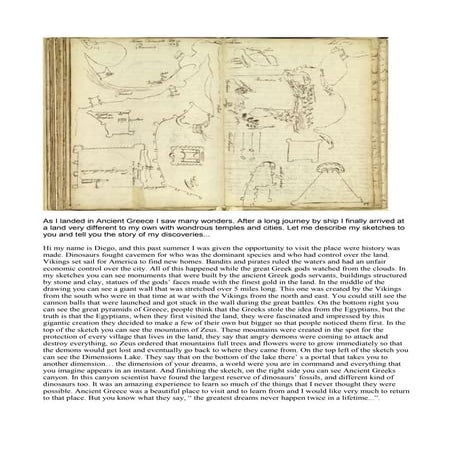 As I landed in Ancient Greece I saw many wonders. After a long journey by ship I finally arrived at
a land very different to my own with wondrous temples and cities. Let me describe my sketches to
you and tell you the story of my discoveries...
Hi my name is Diego, and this past summer I was given the opportunity to visit the place were history was
made. Dinosaurs fought cavemen for who was the dominant species and who had control over the land.
Vikings set sail for America to find new homes. Bandits and pirates ruled the waters and had an unfair
economic control over the city. All of this happened while the great Greek gods watched from the clouds. In
my sketches you can see monuments that were built by the ancient Greek gods servants, buildings structured
by stone and clay, statues of the gods' faces made with the finest gold in the land. In the middle of the
drawing you can see a giant wall that was stretched over 5 miles long. This one was created by the Vikings
from the south who were in that time at war with the Vikings from the north and east. You could still see the
cannon balls that were launched and got stuck in the wall during the great battles. On the bottom right you
can see the great pyramids of Greece, people think that the Greeks stole the idea from the Egyptians, but the
truth is that the Egyptians, when they first visited the land, were very fascinated and impressed by this
gigantic creation they decided to make a few of their own but bigger so that people noticed them first. In the
top of the sketch you can see the mountains of Zeus. These mountains were created in the spot for the
protection of every village that lives in the land, they say that angry demons were coming to attack and
destroy everything, so Zeus ordered that mountains full trees and flowers were to grow immediately so that
the demons would get lost and eventually go back to where they came from. On the top left of the sketch you
can see the Dimensions Lake. They say that on the bottom of the lake there' s a portal that takes you to
another dimension… the dimension of your dreams, a world were you are in command and everything that
you imagine appears in an instant. And finishing the sketch, on the right side you can see Ancient Greeks
canyon. In this canyon scientist have found the largest reserve of dinosaurs' fossils, and different kind of
dinosaurs too. It was an amazing experience to learn so much of the things that I never thought they were
possible. Ancient Greece was a beautiful place to visit and to learn from and I would like very much to return
to that place. But you know what they say, " the greatest dreams never happen twice in a lifetime...".